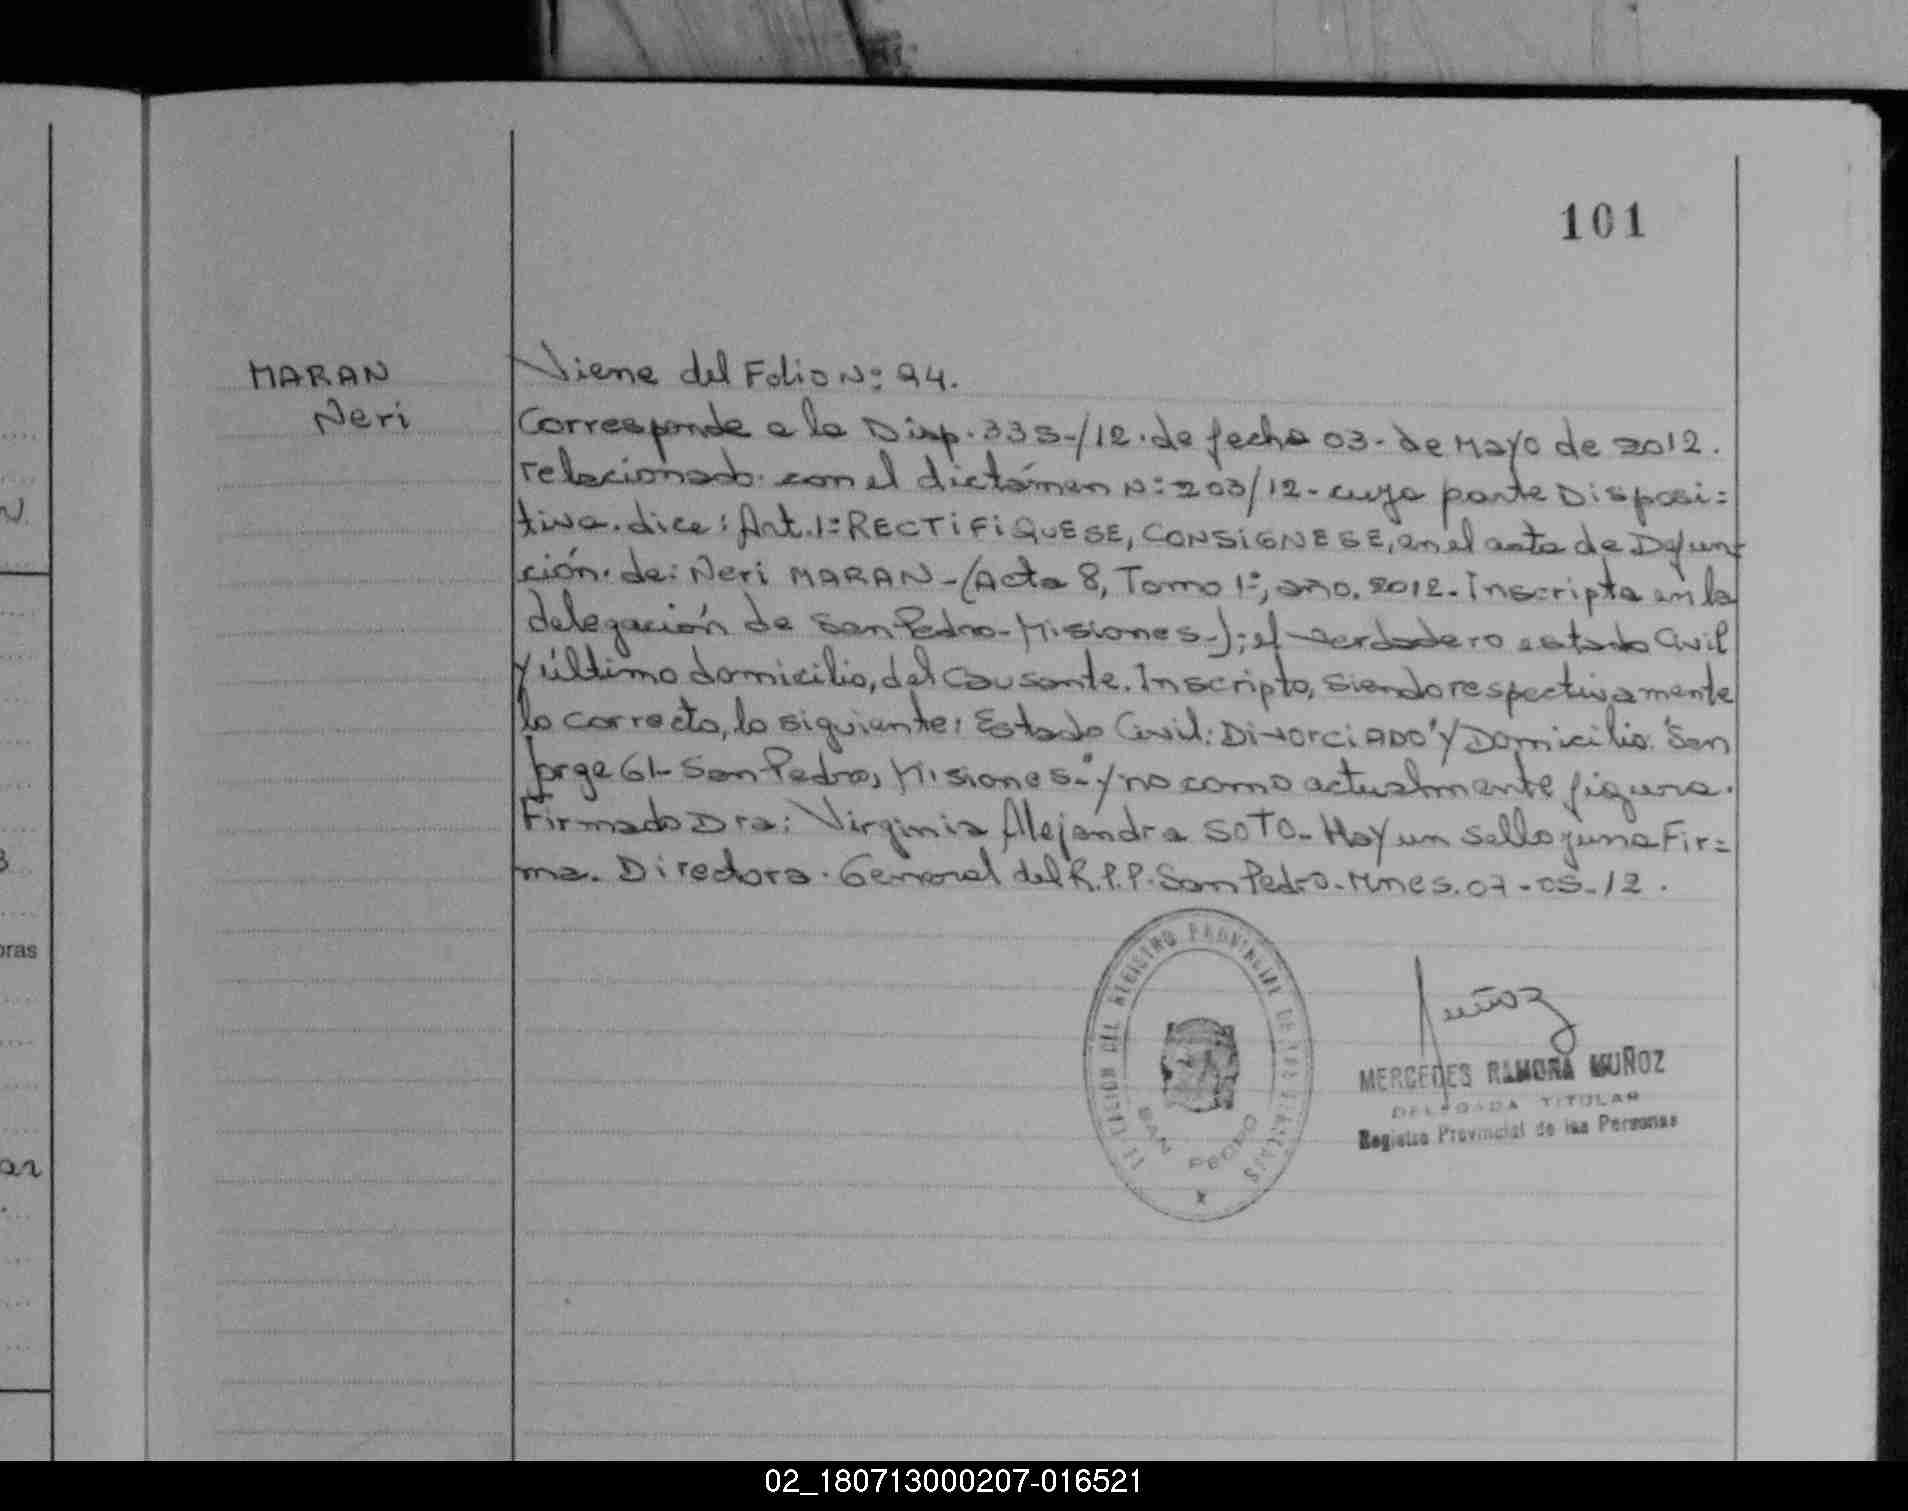 101
MARAN
Neri
Viene del Folio N: 94.
Corresponde a la Disp. 335-/12. de fecha 03- de Mayo de 2012.
relacionado con el dictámen N: 203/12- cuya parte Disposi=
tiva. dice: Art. 1= RECTiFiQUESE, CONSiGNESE, en el acta de Defun=
ción. de: Neri MARAN-(Acta 8, Tomo 1º, año. 2012. Inscripta en la
delegación de San Pedro-Misiones-); el verdadero estado Civil
y último domicilio, del Causante. Inscripto, siendo respectivamente
lo correcto, lo siguiente: Estado Civil: DivorciADO" y Domicilio: "San
Jorge 61- San Pedro, Misiones-" y no como actualmente figura.
Firmado Dra: Virginia Alejandra SOTO- Hay un sello y una Fir=
ma. Directora. General del R.P.P. San Pedro-Mnes. 07-05-12.
DELEGACION DEL REGISTRO PROVINCIAL DE LAS PERSONAS
SAN PEDRO
Muñoz
MERCEDES RAMONA MUÑOZ
DELEGADA TITULAR
Registro Provincial de las Personas
N
oras
ar
02_180713000207-016521